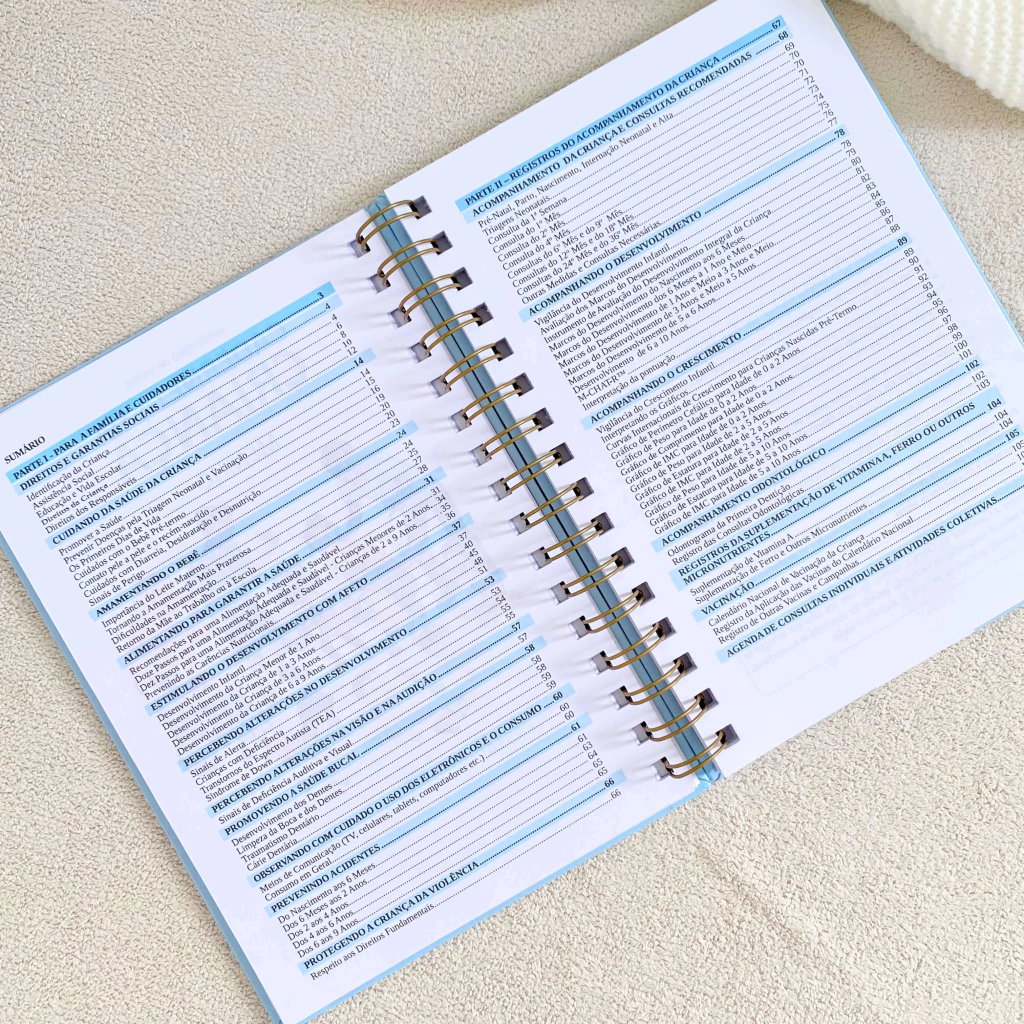 SUMÁRIO
PARTE I - PARA A FAMÍLIA E CUIDADORES 3
DIREITOS E GARANTIAS SOCIAIS 4
Identificação da Criança 4
Assistência Social 6
Educação e Vida Escolar 8
Direitos da Criança 10
Direitos dos Responsáveis 12
CUIDANDO DA SAÚDE DA CRIANÇA 14
Promover a Saúde 14
Prevenir Doenças pela Triagem Neonatal e Vacinação 15
Os Primeiros Dias de Vida 16
Cuidados com o bebê Pré-termo 19
Contato pele a pele e o recém-nascido 20
Cuidados com Diarreia, Desidratação e Desnutrição 20
Sinais de Perigo 23
AMAMENTANDO O BEBÊ 24
Importância do Leite Materno
Tornando a Amamentação Mais Prazerosa
Dificuldades na Amamentação
Retorno da Mãe ao Trabalho ou à Escola
ALIMENTANDO PARA GARANTIR A SAÚDE 31
Recomendações para uma Alimentação Adequada e Saudável
Doze Passos para uma Alimentação Adequada e Saudável - Crianças Menores de 2 Anos
Dez Passos para uma Alimentação Adequada e Saudável - Crianças de 2 a 9 Anos
Prevenindo as Carências Nutricionais
ESTIMULANDO O DESENVOLVIMENTO COM AFETO 37
Desenvolvimento Infantil
Desenvolvimento da Criança Menor de 1 Ano 40
Desenvolvimento da Criança de 1 a 3 Anos
Desenvolvimento da Criança de 3 a 6 Anos
Desenvolvimento da Criança de 6 a 9 Anos 51
PERCEBENDO ALTERAÇÕES NO DESENVOLVIMENTO 53
Sinais de Alerta
Crianças com Deficiência
Transtornos do Espectro Autista (TEA) 55
Síndrome de Down
PERCEBENDO ALTERAÇÕES NA VISÃO E NA AUDIÇÃO 57
Sinais de Deficiência Auditiva e Visual 57
PROMOVENDO A SAÚDE BUCAL 58
Desenvolvimento dos Dentes 58
Limpeza da Boca e dos Dentes 58
Traumatismo Dentário 59
Cárie Dentária 59
OBSERVANDO COM CUIDADO O USO DOS ELETRÔNICOS E O CONSUMO 60
Meios de Comunicação (TV, celulares, tablets, computadores etc.) 60
Consumo em Geral 60
PREVENINDO ACIDENTES 61
Do Nascimento aos 6 Meses 61
Dos 6 Meses aos 2 Anos 63
Dos 2 aos 4 Anos 64
Dos 4 aos 6 Anos 65
Dos 6 aos 9 Anos 65
PROTEGENDO A CRIANÇA DA VIOLÊNCIA 66
Respeito aos Direitos Fundamentais 66
PARTE II – REGISTROS DO ACOMPANHAMENTO DA CRIANÇA 67
ACOMPANHAMENTO DA CRIANÇA E CONSULTAS RECOMENDADAS 68
Pré-Natal, Parto, Nascimento, Internação Neonatal e Alta 69
Triagens Neonatais 70
Consulta da 1ª Semana 70
Consulta do 1º Mês 71
Consulta do 2º Mês 72
Consulta do 4º Mês 73
Consultas do 6º Mês e do 9º Mês 74
Consultas do 12º Mês e do 18º Mês 75
Consultas do 24º Mês e do 36º Mês 76
Outras Medidas e Consultas Necessárias 77
ACOMPANHANDO O DESENVOLVIMENTO 78
Vigilância do Desenvolvimento Infantil 78
Avaliação dos Marcos do Desenvolvimento 79
Instrumento de Avaliação do Desenvolvimento Integral da Criança 80
Marcos do Desenvolvimento do Nascimento aos 6 Meses 81
Marcos do Desenvolvimento dos 6 Meses a 1 Ano e Meio 82
Marcos do Desenvolvimento de 1 Ano e Meio a 3 Anos e Meio 83
Marcos do Desenvolvimento de 3 Anos e Meio a 5 Anos 84
Desenvolvimento de 5 a 6 Anos 85
M-CHAT-R™ de 6 a 10 Anos 86
Interpretação da pontuação 88
ACOMPANHANDO O CRESCIMENTO 89
Vigilância do Crescimento Infantil 89
Interpretando os Gráficos 90
Curvas Internacionais de Crescimento para Crianças Nascidas Pré-Termo 91
Gráfico de Perímetro Cefálico para Idade de 0 a 2 Anos 92
Gráfico de Peso para Idade de 0 a 2 Anos 93
Gráfico de Comprimento para Idade de 0 a 2 Anos 94
Gráfico de IMC para Idade de 0 a 2 Anos 95
Gráfico de Peso para Idade de 2 a 5 Anos 96
Gráfico de Estatura para Idade de 2 a 5 Anos 97
Gráfico de IMC para Idade de 2 a 5 Anos 98
Gráfico de Peso para Idade de 5 a 10 Anos 99
Gráfico de Estatura para Idade de 5 a 10 Anos 100
Gráfico de IMC para Idade de 5 a 10 Anos 101
ACOMPANHAMENTO ODONTOLÓGICO 102
Odontograma da Primeira Dentição 102
Registro das Consultas Odontológicas 103
REGISTROS DA SUPLEMENTAÇÃO DE VITAMINA A, FERRO OU OUTROS
MICRONUTRIENTES 104
Suplementação de Vitamina A 104
Suplementação de Ferro e Outros Micronutrientes 104
VACINAÇÃO 105
Calendário Nacional de Vacinação da Criança
Registro da Aplicação das Vacinas do Calendário Nacional
Registro de Outras Vacinas e Campanhas
AGENDA DE CONSULTAS INDIVIDUAIS E ATIVIDADES COLETIVAS